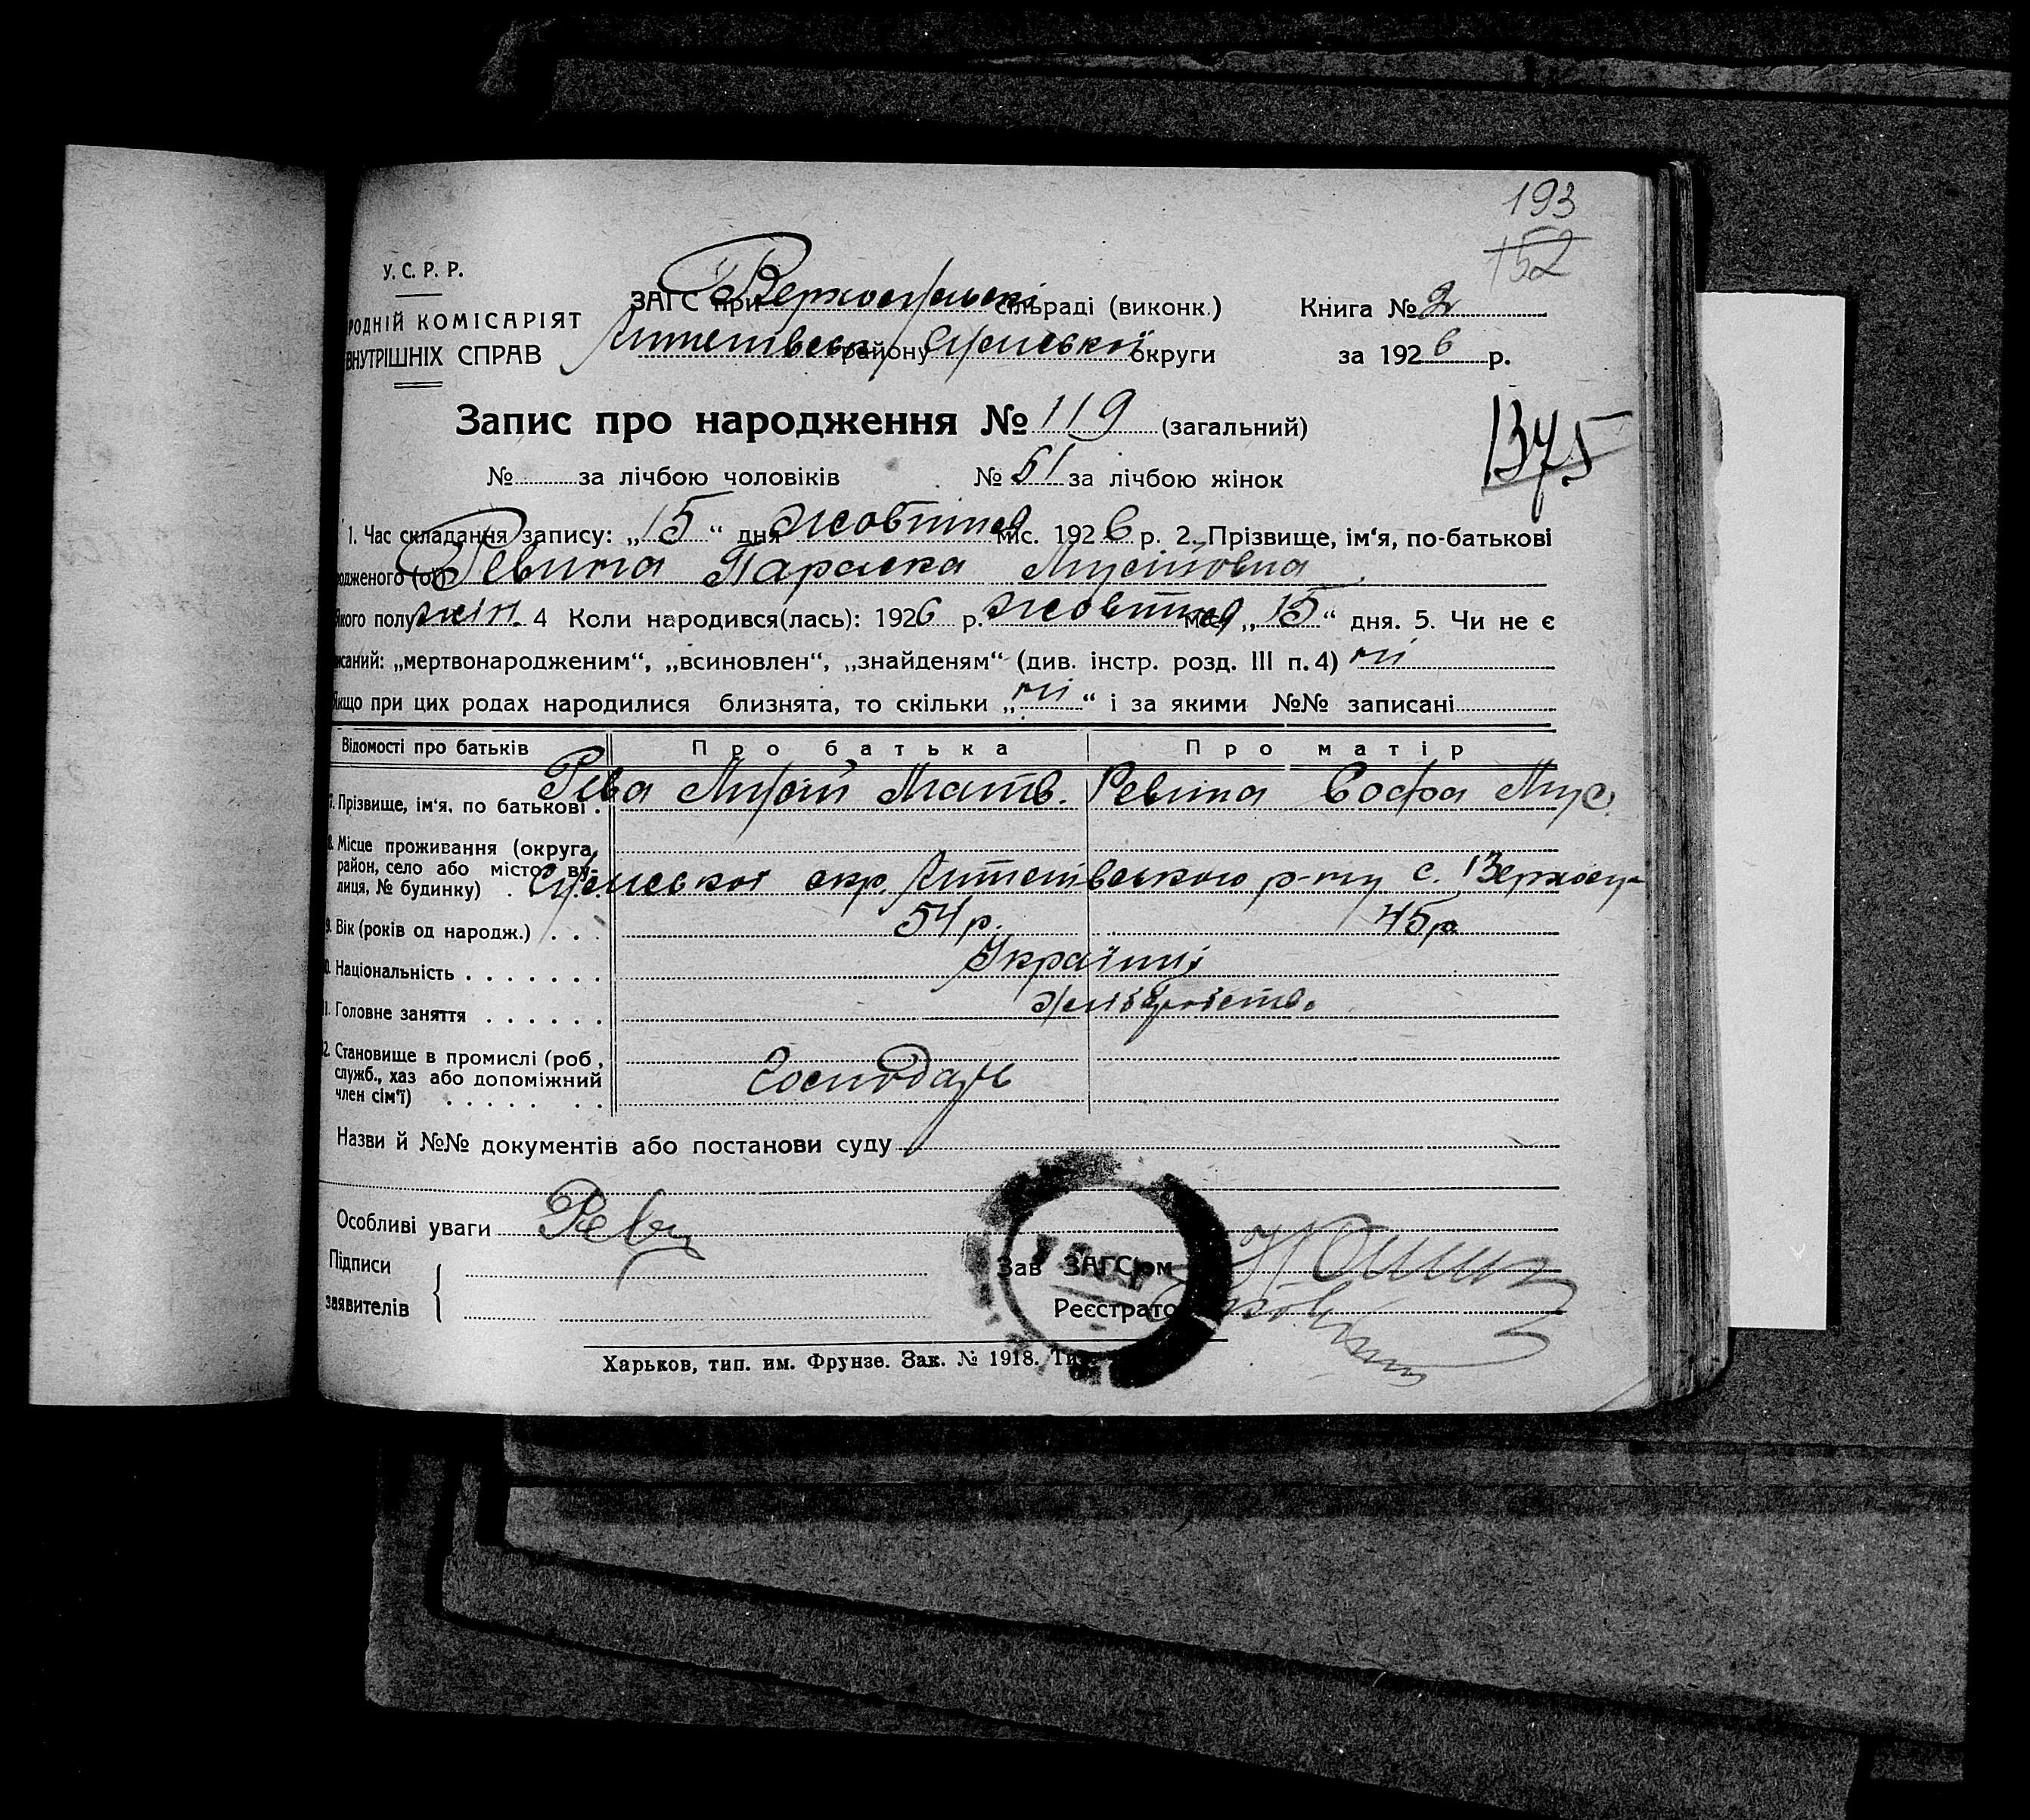 193
152
У. С. Р. Р.
РОДНІЙ КОМІСАРІЯТ
ВНУТРІШНІХ СПРАВ
ЗАГС при Верхосульскі сільраді (виконк.)
Книга № 2
району Сумської округи
за 1926 р.
Запис про народження № 119 (загальний)
1375
№ за лічбою чоловіків № 61 за лічбою жінок
1. Час складання запису: „15“ дня жовтня міс. 1926 р. 2. Прізвище, ім‘я, по-батькові
одженого (ої) Ревина Параска Мусіївна
якого полу жін. 4 Коли народився(лась): 1926 р. жовтня міс. „15“ дня. 5. Чи не є
исаний: „мертвонародженим“, „всиновлен“, „знайденям“ (див. інстр. розд. III п. 4) ні
Якщо при цих родах народилися близнята, то скільки „ні“ і за якими №№ записані
Відомості про батьків Про батька Про матір
7. Прізвище, ім‘я, по батькові . Рева Мусій Матв. Ревина Софа Мус.
8. Місце проживання (округа,
район, село або місто, ву-
лиця, № будинку) . Сумської окр. Штепівського р-ну с. Верхосу-
9. Вік (років од народж.) . . . 54 р. 45 р.
10. Національність . . . . . . . Українці
11. Головне заняття . . . . . . Хлібробство
12. Становище в промислі (роб,
служб., хаз або допоміжний
член сім‘ї) . . . . . . . Господарь
Назви й №№ документів або постанови суду
Особливі уваги Рева
Підписи
заявителів
Зав ЗАГС‘ом
Реєстрато
Харьков, тип. им. Фрунзе. Зак. № 1918.